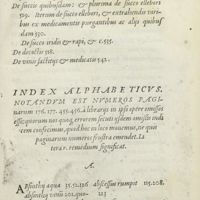 De succis quibusdam: & plurima de succo ellebori
519. Iterum de succo ellebori, & extrahendis variis
bus ex medicamentis purgantibus ac alijs quibus
dam 530.
De succo iridis & rapi, & c. 535.
De decoctis 518.
De vinis factitijs & medicatis 542.
INDEX ALPHABETICVS.
NOTANDVM EST NVMEROS PAGI-
narum 176. 177. 455. 456. à librarijs in ipso opere omissos
esse: quorum nos quoq; errorem secuti eosdem omisimus indi
cem conficimus, quod hic in loco monemus, ne quis
paginarum numeros frustra emendet. Li
terar. remedium significat.
A.
Absinthij aqua 35. 52. 126
absinthij vinū 202. 400
abscessus rumpot 115. 208.